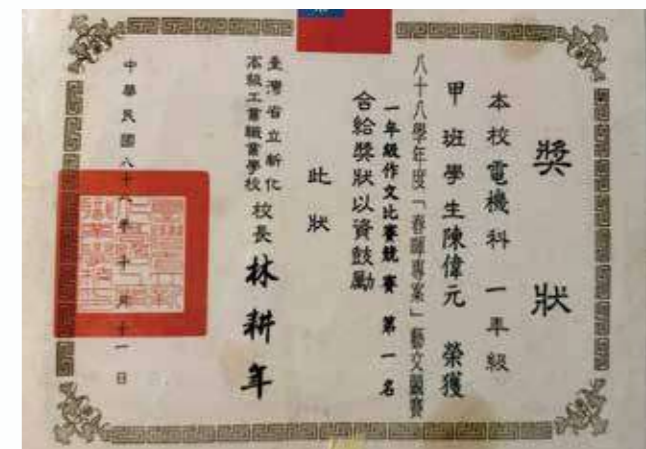 獎狀
本校電機科一年級
甲班學生陳偉元 榮獲
八十八學年度「春暉專案」藝文競賽
一年級作文比賽競賽 第一名
合給獎狀以資鼓勵
此狀
臺灣省立新化
高級工業職業學校
校長 林耕年
中華民國八十八年十一月十一日